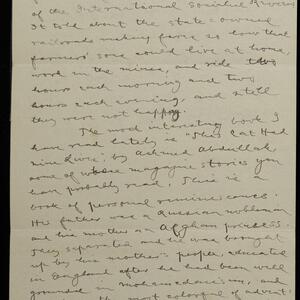 of the International Socialist Review
It told about the state-owned
railroads making fares so low that
farmers' sons could live at home,
work in the mines, and ride two
hours each morning and two
hours each evening, and still
they were not happy.
The most interesting book I
have read lately is "This Cat Had
nine Lives" by Achmed Abdullah,
some of whose magazine stories you
have probably read. This is a
book of personal reminiscences.
His father was a Russian nobleman
and his mother an Afghan princess.
They separated and he was brought
up by his mother's people, educated
in England after he had been well
grounded in mohamedanism, and
the most colorful of advent-